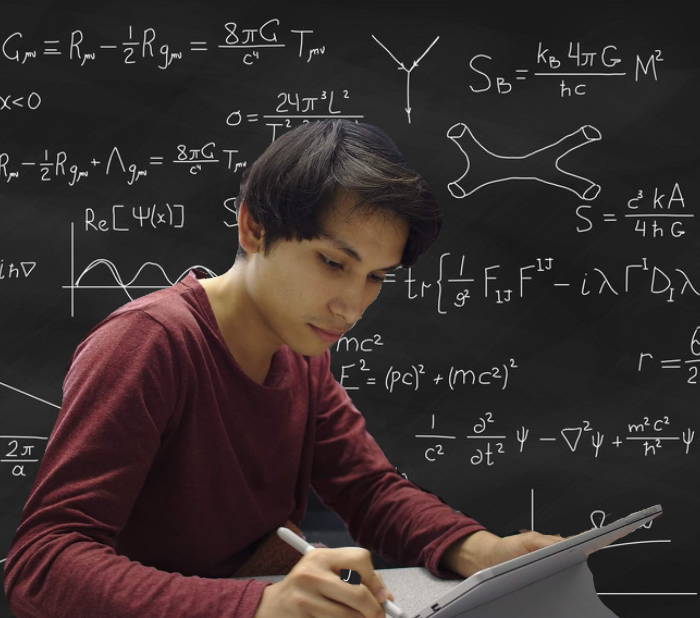 Gμν ≡ Rμν − 1/2 Rgμν = 8πG/c⁴ Tμν
S_B = k_B 4πG/ħc M²
x<0
σ = 24π³L²
Rμν − 1/2 Rgμν + Λgμν = 8πG/c⁴ Tμν
Re[Ψ(x)]
S = c³kA/4ħG
iħ∇
= tr{1/g² F_IJ F^IJ − iλ Γ^I D_I λ
mc²
E² = (pc)² + (mc²)²
r =
1/c² ∂²/∂t² ψ − ∇²ψ + m²c²/ħ² ψ
2π/a